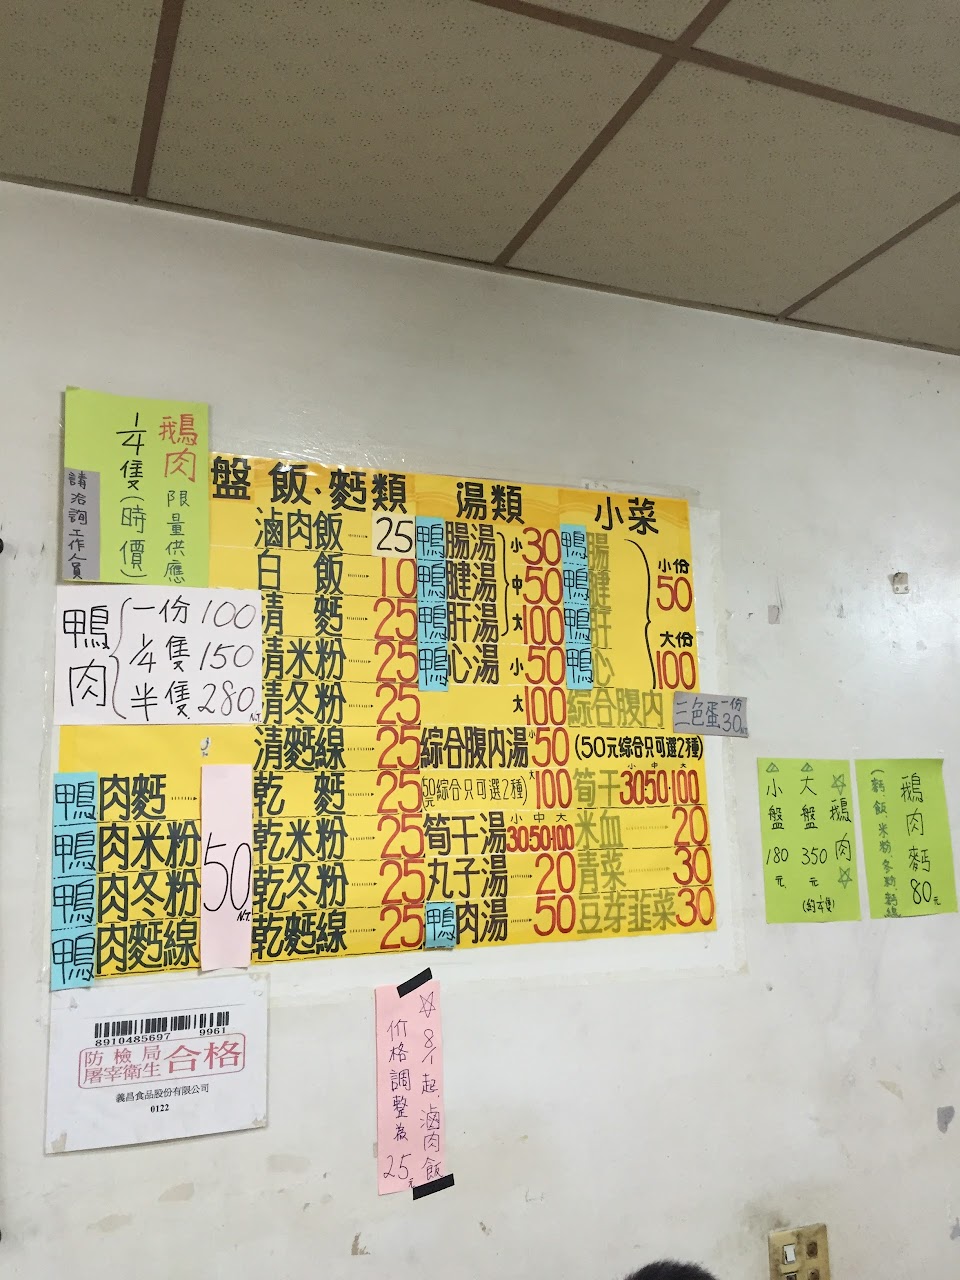 鵝肉 限量供應
1/4隻(時價)
請洽詢工作人員
鴨肉
一份100
1/4隻150
半隻280 N.T.
盤 飯、麵類
滷肉飯 25
白 飯 10
清 麵 25
清米粉 25
清冬粉 25
清麵線 25
乾 麵 25
乾米粉 25
乾冬粉 25
乾麵線 25
鴨肉麵
鴨肉米粉
鴨肉冬粉
鴨肉麵線
50 N.T.
湯類
鴨腸湯
鴨腱湯
鴨肝湯
小 30
中 50
大 100
鴨心湯 小 50
大 100
綜合腹內湯 小 50
(50元綜合只可選2種) 大 100
筍干湯 小 中 大 30·50·100
丸子湯 20
鴨肉湯 50
小菜
鴨腸
鴨腱
鴨肝
鴨心
小份
50
大份
100
綜合腹內
(50元綜合只可選2種)
筍干 小 中 大 30·50·100
米血 20
青菜 30
豆芽韭菜 30
三色蛋一份30 N.T.
☆鵝肉☆
△大盤 350元
△小盤 180元
鵝肉麵 80元
(麵、飯、米粉、冬粉、麵線
8910485697 9961
防檢局
屠宰衛生
合格
義昌食品股份有限公司
0122
☆8/1起,滷肉飯
价格調整為25元